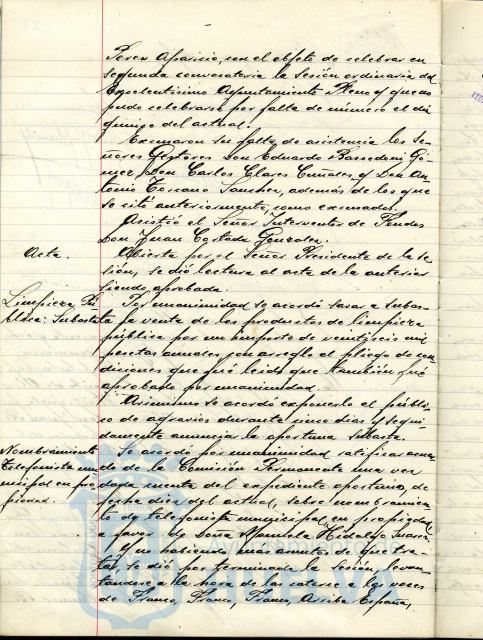 Perez Aparicio, con el objeto de celebrar en
segunda convocatoria la sesión ordinaria del
Excelentísimo Ayuntamiento Pleno y que no
pudo celebrarse por falta de número el día
quince del actual.
Excusaron su falta de asistencia los Se-
ñores Gestores Don Eduardo Bassedoni Gó-
mez, Don Carlos Clares Cuñales y Don An-
tonio Toscano Sanchez, además de los que
se citó anteriormente, como excusados.
Asistió el Señor Interventor de Fondos
Don Juan Cortada Gonzalez.
Acta.
Abierta por el Señor Presidente de la se-
sión, se dió lectura al acta de la anterior
siendo aprobada.
Limpieza Pú-
blica: Subasta
Por unanimidad se acordó sacar a subas-
ta la venta de los productos de limpieza
pública por un importe de veintiseis mil
pesetas anuales, con arreglo al pliego de con-
diciones que fué leido y que también fué
aprobado por unanimidad.
Asimismo se acordó exponerlo al públi-
co de agravios durante cinco dias y segui-
damente anunciar la oportuna subasta.
Nombramiento
Telefonista mu-
nicipal en pro-
piedad.
Se acordó por unanimidad ratificar acuer-
do de la Comisión Permanente una vez
dada cuenta del expediente oportuno, de
fecha diez del actual, sobre nombramien-
to de telefonista municipal, en propiedad
a favor de Doña Manuela Hidalgo Suarez.
Y no habiendo más asuntos de que tra-
tar, se dió por terminada la sesión, levan-
tandose a la hora de las catorce a las voces
de Franco, Franco, Franco, Arriba España,
Ayuntamiento de
HUELVA